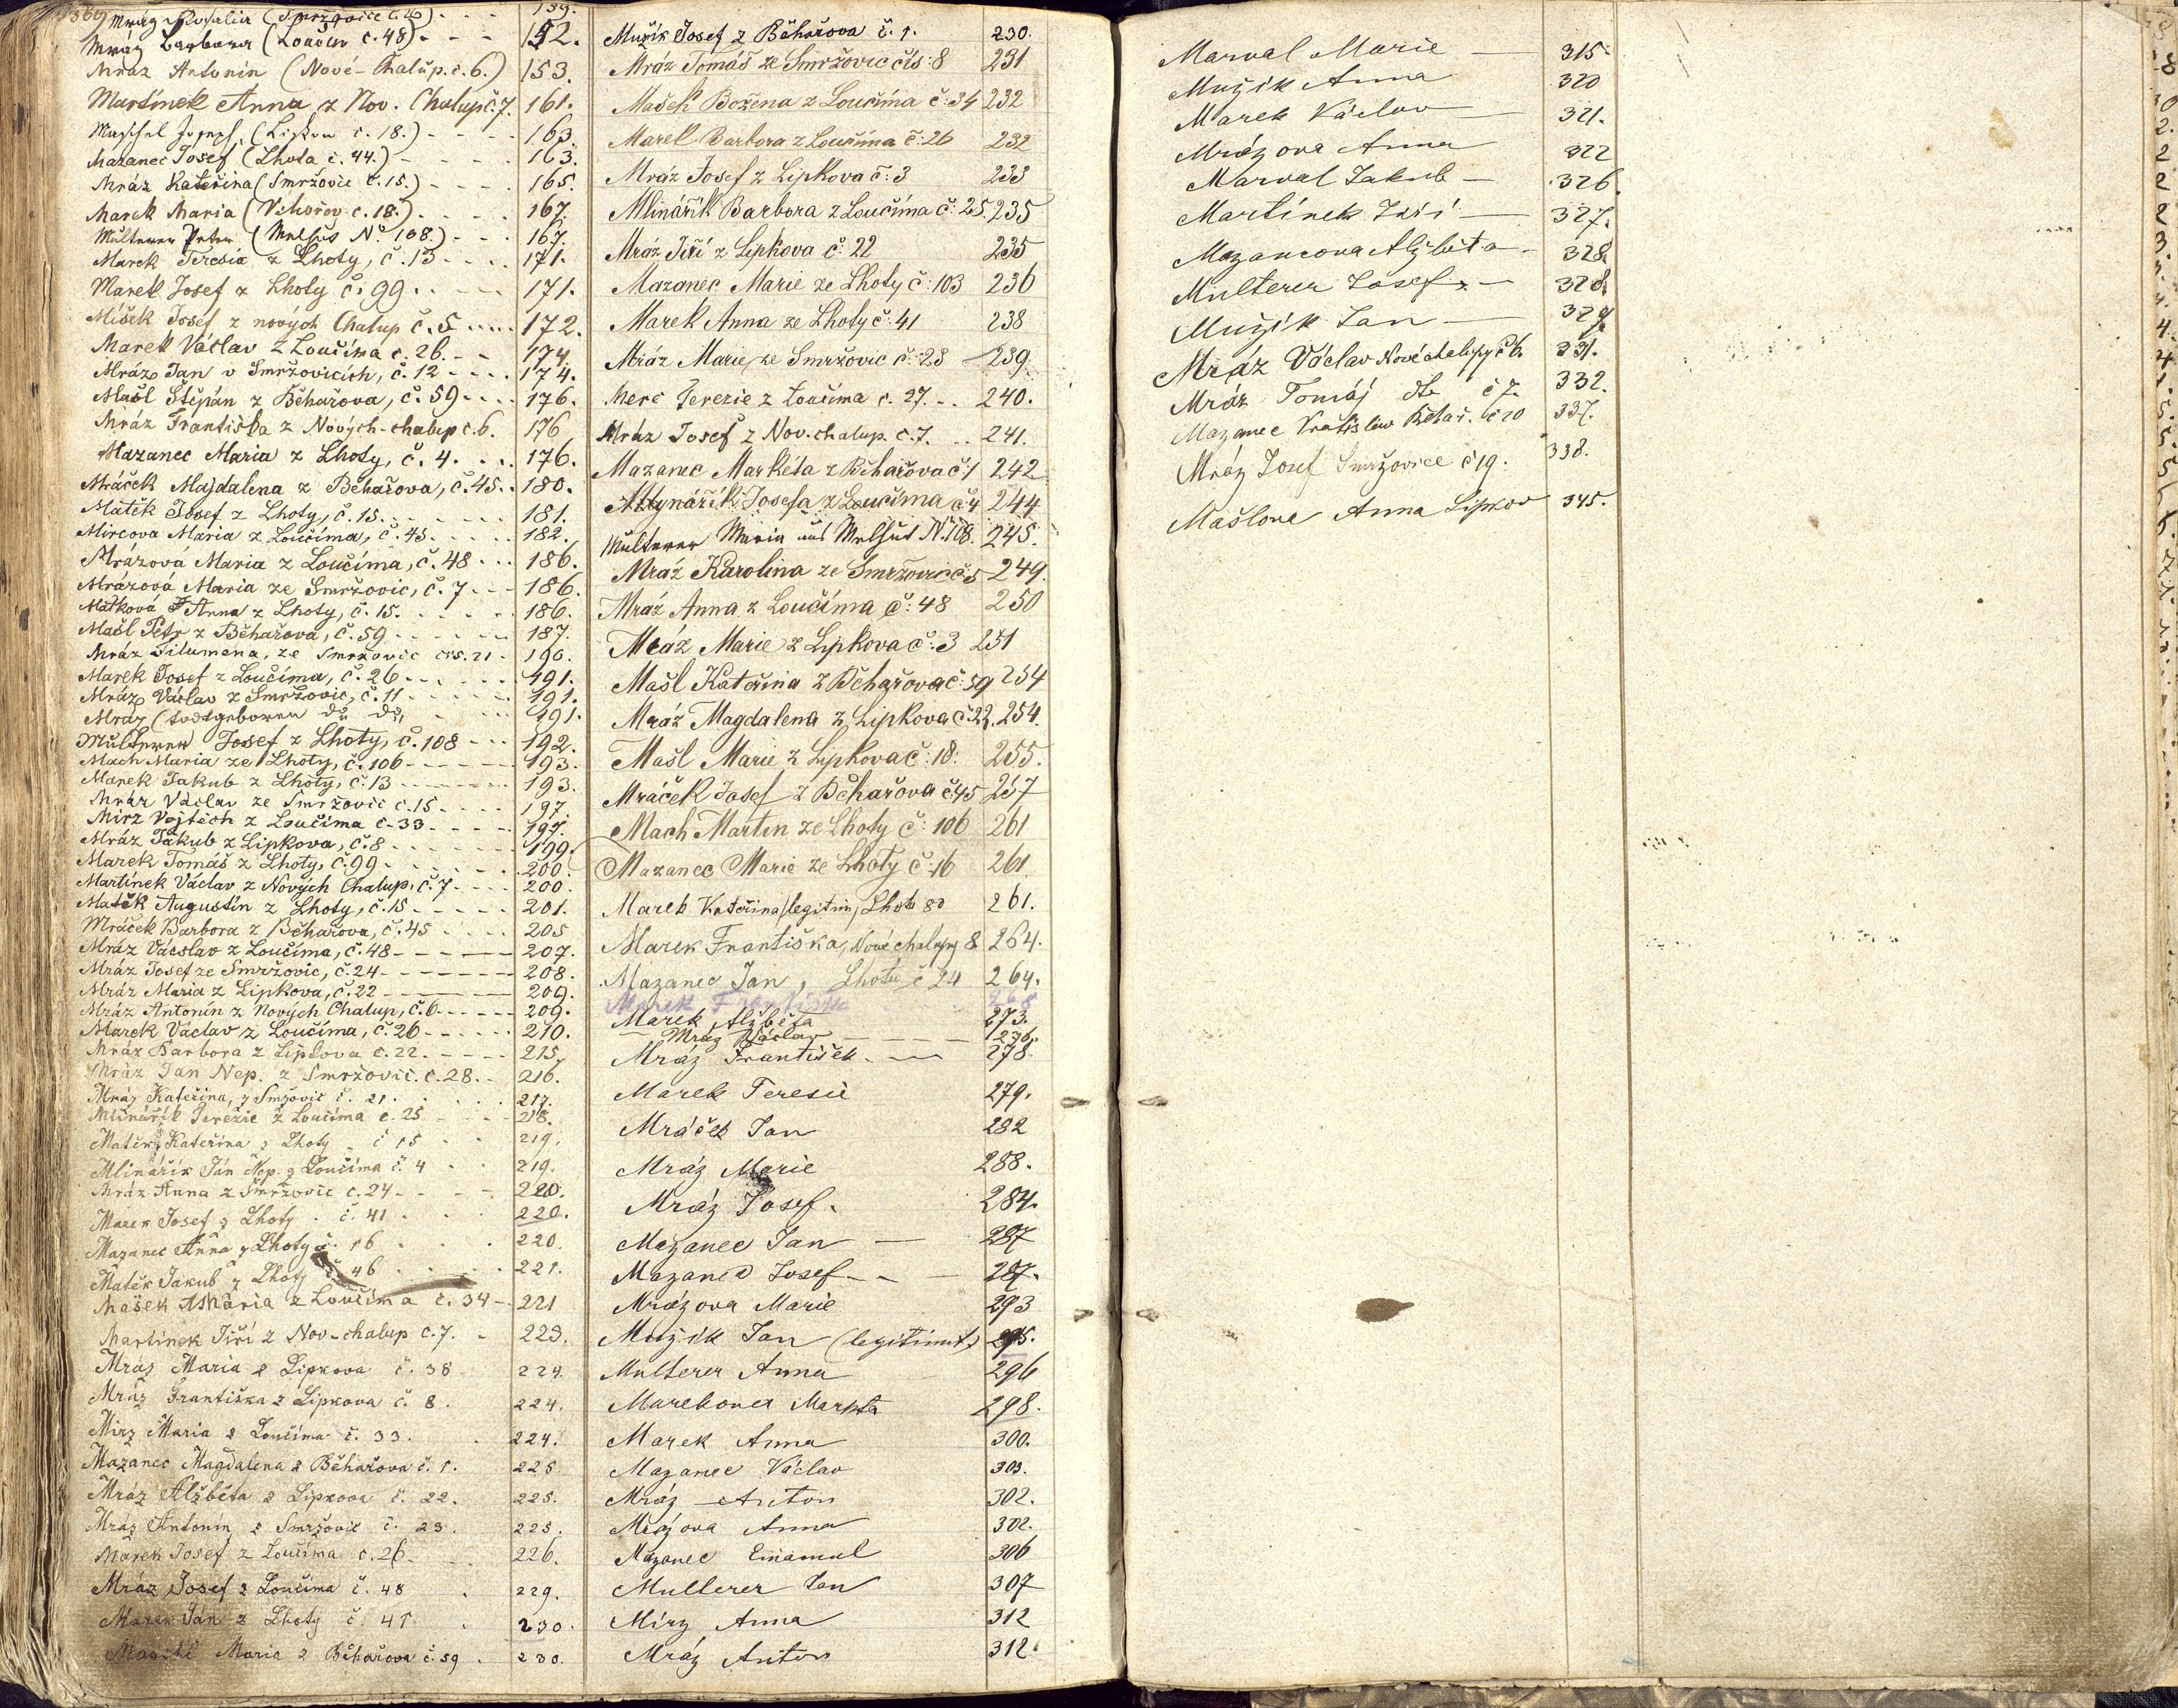 Mráz Rosalia (Smržovice č. 26) - - - 159.
Mráz Barbora (Loučim č. 48) - - - 152.
Mráz Antonín (Nové-Chalup. č. 6.) 153.
Martínek Anna z Nov. Chalup č. 7. 161.
Maschel Joseph, (Lipkou č. 18.) - - - 163.
Mazanec Josef, (Lhota č. 44.) - - - 163.
Mráz Kateřina (Smržovic č. 15.) - - - 165.
Marek Maria (Vihořov č. 18.) - - - 167.
Multerer Peter (Melhut No. 108.) - - - 167.
Marek Teresia z Lhoty, č. 13 - - - 171.
Marek Josef z Lhoty č. 99 - - - 171.
Míšek Josef z nových Chalup č. 5 - - - 172.
Marek Václav z Loučima č. 26. - - 174.
Mráz Jan v Smržovicích, č. 12 - - - 174.
Mašl Štěpán z Běhařova, č. 59 - - - 176.
Mráz Františka z Nových-chalup č. 6. 176
Mazanec Maria z Lhoty, č. 4. - - - 176.
Mráček Majdalena z Běhařova, č. 45. - 180.
Matěk Josef z Lhoty, č. 15. - - - 181.
Mircova Maria z Loučima, č. 45 - - - 182.
Mrázová Maria z Loučima, č. 48 - - - 186.
Mrázová Maria ze Smržovic, č. 7 - - - 186.
Matková Anna z Lhoty, č. 15. - - - 186.
Mašl Petr z Běhařova, č. 59 - - - 187.
Mráz Filumena, ze Smržovic čís. 21 - 190.
Marek Josef z Loučima, č. 26 - - - 191.
Mráz Václav z Smržovic, č. 11 - - - 191.
Mráz (todtgeboren do do, - - - 191.
Multerer Josef z Lhoty, č. 108 - - - 192.
Mach Maria ze Lhoty, č. 106 - - - 193.
Marek Jakub z Lhoty, č. 13 - - - 193.
Mráz Václav ze Smržovic č. 15 - - - 197.
Mirz Vojtěch z Loučima č. 33 - - - 197.
Mráz Jakub z Lipkova, č. 8 - - - 199.
Marek Tomáš z Lhoty, č. 99 - - - 200.
Martínek Václav z Nových Chalup, č. 7 - - - 200.
Matěk Augustin z Lhoty, č. 15 - - - 201.
Mráček Barbora z Běhařova, č. 45 - - - 205
Mráz Vácslav z Loučima, č. 48 - - - 207.
Mráz Josef ze Smržovic, č. 24 - - - 208.
Mráz Maria z Lipkova, č. 22 - - - 209.
Mráz Antonín z Nových Chalup, č. 6 - - - 209.
Marek Václav z Loučima, č. 26 - - - 210.
Mráz Barbora z Lipkova č. 22. - - - 215.
Mráz Jan Nep. z Smržovic. č. 28. - 216.
Mráz Kateřina, z Smžovic č. 21. - - - 217.
Mlinářík Terezie z Loučima č. 25 - - - 218.
Matěk Kateřina z Lhoty - č 15 - - 219.
Mlinářík Ján Nep. z Loučima č. 4 - - 219.
Mráz Anna z Smržovic č. 24 - - - 220.
Marek Josef z Lhoty - č. 41 - - 220.
Mazanec Anna z Lhoty č. 16 - - - 220.
Matěk Jakub z Lhoty č. 46 - - - 221.
Mašek Maria z Loučima č. 34 - 221
Martínek Jiří z Nov-chalup č. 7. - 223.
Mráz Maria z Lipkova č. 38 224.
Mráz Františka z Lipkova č. 8. 224.
Mirz Maria z Loučima č. 33. 224.
Mazanec Magdalena z Běhařova č. 1. 225
Mráz Alžběta z Lipkova č. 22. 225.
Mráz Antonín z Smržovic č. 23. 225.
Marek Josef z Loučima č. 26. - - 226.
Mráz Josef z Loučima č. 48 229.
Marek Ján z Lhoty č. 41 230.
Maschl Maria z Běhařova č. 59. 230.
Mužík Josef z Běhařova č. 1. 230.
Mráz Tomáš ze Smržovic čís: 8 231
Mašek Božena z Loučima č: 34 232
Marek Barbora z Loučima č: 26 232
Mráz Josef z Lipkova č: 3 233
Mlinářík Barbora z Loučima č: 25. 235
Mráz Jiří z Lipkova č: 22 235
Mazanec Marie ze Lhoty č: 103 236
Marek Anna ze Lhoty č: 41 238
Mráz Marie ze Smržovic č: 23 239.
Merc Terezie z Loučima č. 27. - - 240.
Mráz Josef z Nov. chalup. č. 7. - - 241.
Mazanec Markéta z Běhařova č: 1 242
Mlynářík Josefa z Loučima č: 4 244
Multerer Maria aus Melhut N. 108. 245.
Mráz Karolina ze Smržovic č: 5 249.
Mráz Anna z Loučima č: 48 250
Mráz Marie z Lipkova č: 3 251
Mašl Kateřina z Běhařova č: 59 254
Mráz Magdalena z Lipkova č: 22. 254.
Mašl Marie z Lipkova č: 18: 255.
Mráček Josef z Běhařova č: 45 257
Mach Martin ze Lhoty č: 106 261
Mazanec Marie ze Lhoty č: 16 261
Marek Kateřina (legitim) Lhota 80 261.
Marek Františka, Nové chalupy 8 264.
Mazanec Jan, Lhota č 24 264.
Marek Františka 268
Marek Alžběta 273.
Mráz Václav - - - 276.
Mráz František. - 278.
Marek Teresie 279.
Mráček Jan 282
Mráz Marie 288.
Mráz Josef. 284.
Mazanec Jan - 287
Mazanec Josef - - 287.
Mrázova Marie 293
Mužik Jan (legitimut) 295.
Multerer Anna 296
Marekova Markta 298.
Marek Anna 300.
Mazanec Václav 303.
Mráz Anton 302.
Mrázova Anna 302.
Mazanec Emamul 306
Mullerer Jan 307
Mirz Anna 312
Mráz Anton 312.
Marval Marie - 315.
Mužik Anna 320
Marek Václav - 321.
Mrázova Anna 322
Marval Jakub - 326.
Martínek Jiří - 327.
Mazancova Alžběta - 328.
Multerer Josef - 328.
Mužik Jan - 329.
Mráz Václav Nové chalupy č 6. 331.
Mráz Tomáj dto č 7. 332.
Mazanec Vratislav Běhař. č 10 337.
Mráz Josef Smržovice č 19. 338.
Mašlova Anna Lipkov 345.